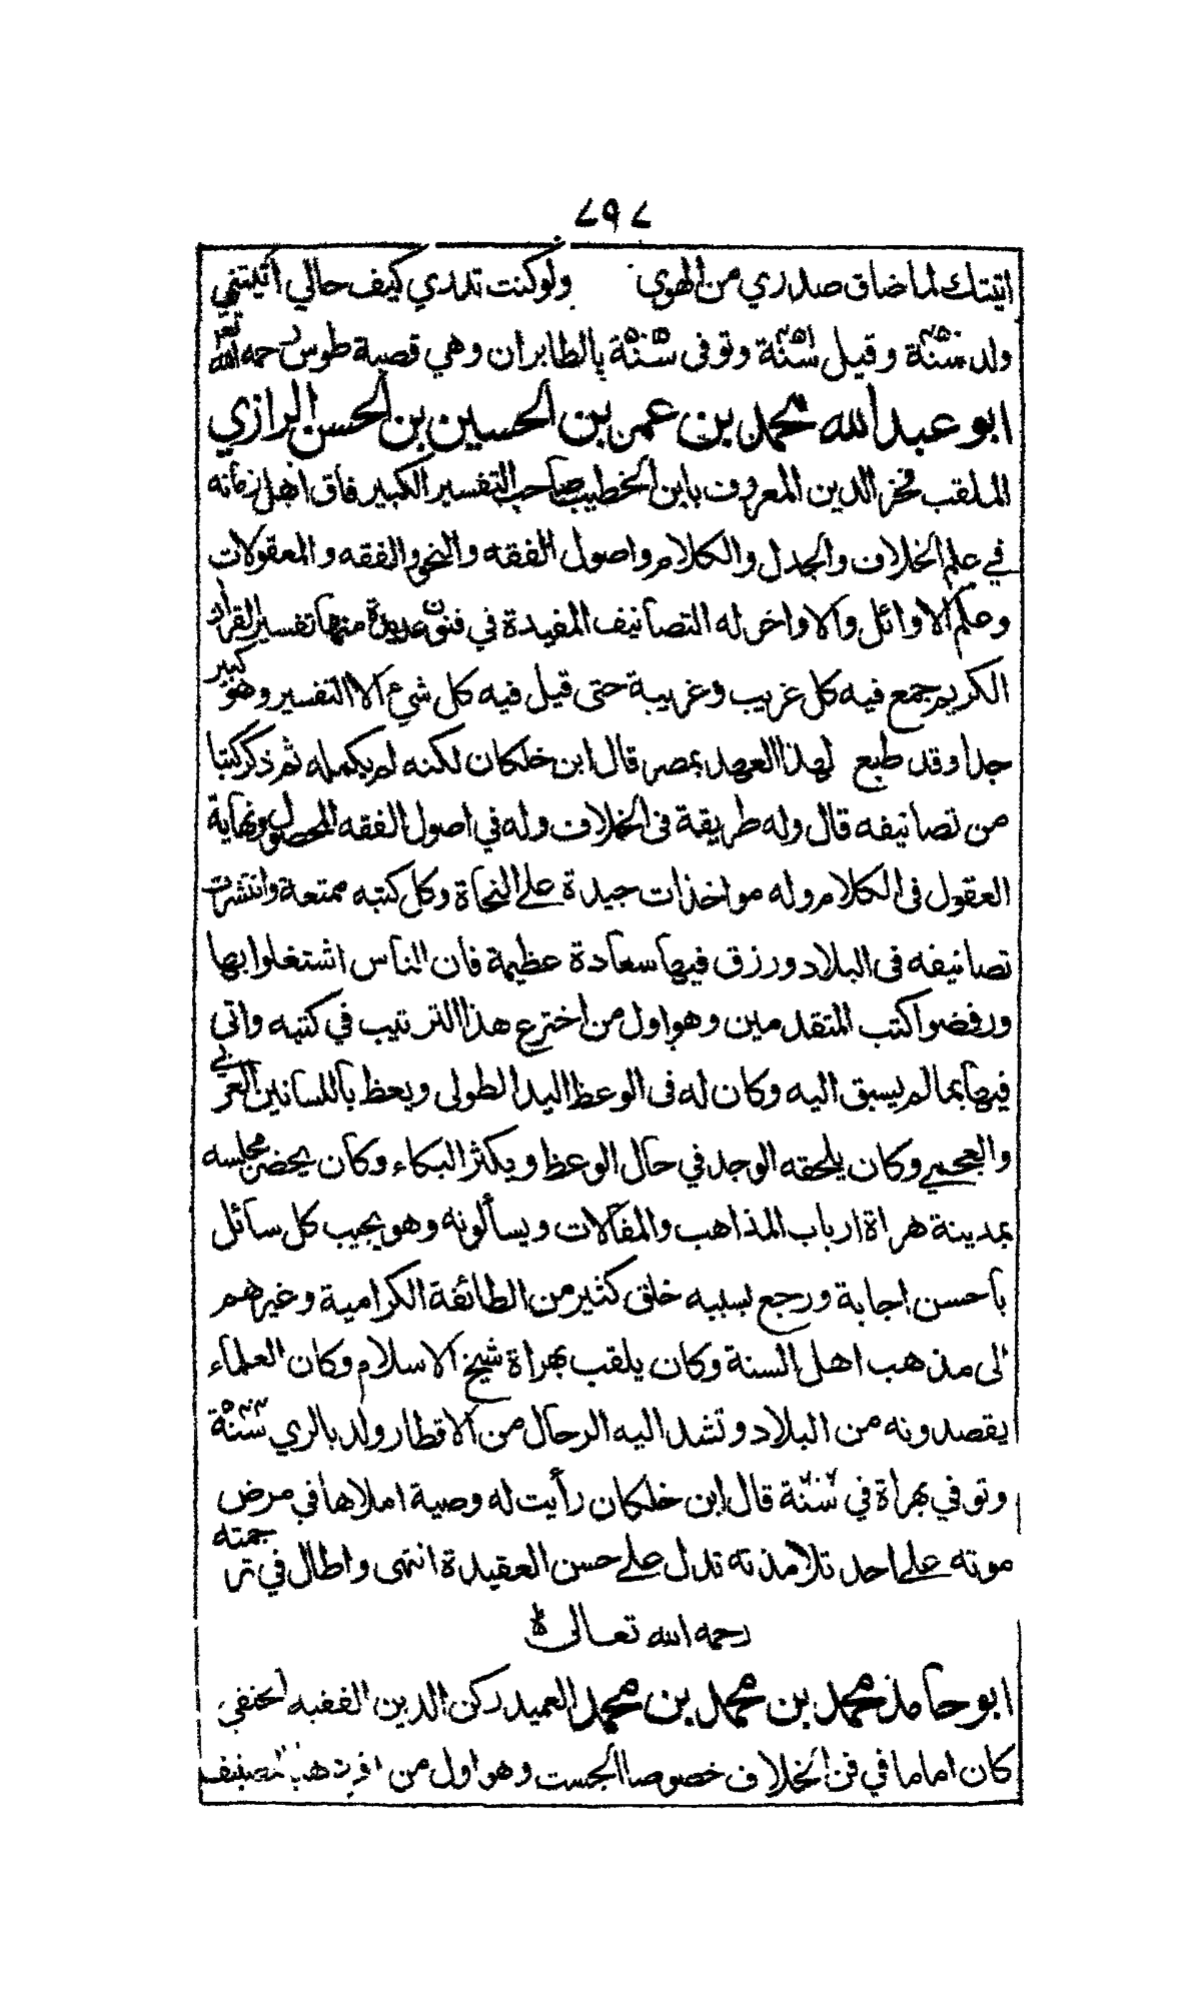 ٧٩٧
اتيتك لما ضاق صدري من الهوى ولو كنت تدري كيف حالي اتيتني
ولد سنة ٤٥٠ وقيل سنة ٤٥١ وتوفى سنة ٥٠٥ بالطابران وهي قصبة طوس رحمه الله تعالى
ابو عبد الله محمد بن عمر بن الحسين بن الحسن الرازي
الملقب فخر الدين المعروف بابن الخطيب صاحب التفسير الكبير فاق اهل زمانه
في علم الخلاف والجدل والكلام واصول الفقه والنحو والفقه والمعقولات
وعلم الاوائل والاواخر له التصانيف المفيدة في فنون عديدة منها تفسير القران
الكريم جمع فيه كل غريب وغريبة حتى قيل فيه كل شيء الا التفسير وهو كبير
جدا وقد طبع لهذا العهد بمصر قال ابن خلكان لكنه لم يكمله ثم ذكر كتبا
من تصانيفه قال وله طريقة فى الخلاف وله في اصول الفقه المحصول ونهاية
العقول فى الكلام وله مواخذات جيدة على النحاة وكل كتبه ممتعة وانتشرت
تصانيفه فى البلاد ورزق فيها سعادة عظيمة فان الناس اشتغلوا بها
ورفضوا كتب المتقدمين وهو اول من اخترع هذا الترتيب في كتبه واتى
فيها بما لم يسبق اليه وكان له فى الوعظ اليد الطولى ويعظ باللسانين العربي
والعجمي وكان يلحقه الوجد في حال الوعظ ويكثر البكاء وكان يحضر مجلسه
بمدينة هراة ارباب المذاهب والمقالات ويسألونه وهو يجيب كل سائل
باحسن اجابة ورجع بسببه خلق كثير من الطائفة الكرامية وغيرهم
الى مذهب اهل السنة وكان يلقب بهراة شيخ الاسلام وكان العلماء
يقصدونه من البلاد وتشد اليه الرحال من الاقطار ولد بالري سنة
وتوفي بهراة في سنة قال ابن خلكان رأيت له وصية املاها في مرض
موته على احد تلامذته تدل على حسن العقيدة انتهى واطال في ترجمته
رحمه الله تعالى
ابو حامد محمد بن محمد بن محمد العميد ركن الدين الفقيه الحنفي
كان اماما في فن الخلاف خصوصا الجست وهو اول من افرده بالتصنيف